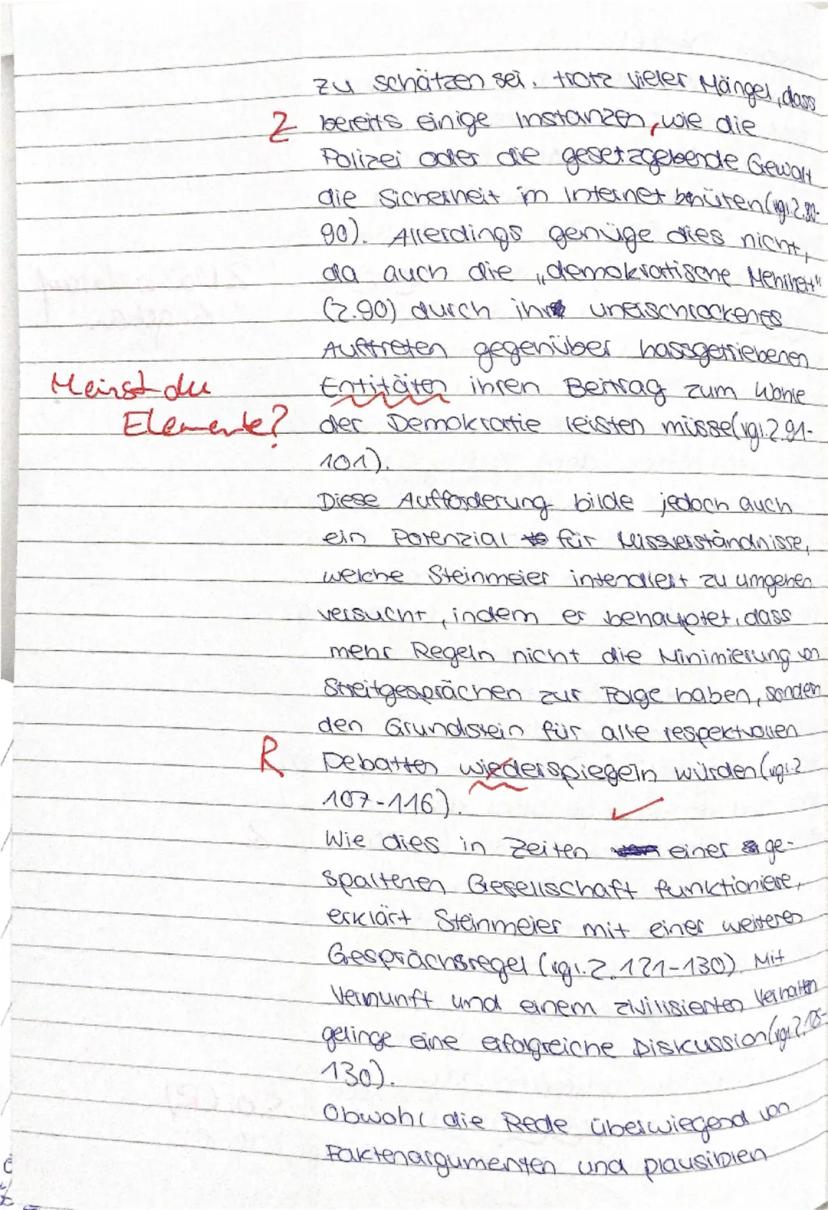 zu schätzen sei, trotz vieler Mängel, dass
Z bereits einige Instanzen, wie die
Polizei oder die gesetzgebende Gewalt
die Sicherheit im Internet behüten (vgl. Z. 80-
90). Allerdings genüge dies nicht,
da auch die „demokratische Mehrheit"
(Z. 90) durch ihr unerschrockenes
Auftreten gegenüber hassgetriebenen
Meinst du Entitäten ihren Beitrag zum Wohle
Elemente? der Demokratie leisten müsse (vgl. Z. 91-
101).
Diese Aufforderung bilde jedoch auch
ein Potenzial für Missverständnisse,
welche Steinmeier intendiert zu umgehen
versucht, indem er behauptet, dass
mehr Regeln nicht die Minimierung von
Streitgesprächen zur Folge haben, sondern
den Grundstein für alle respektvollen
R Debatten wiederspiegeln würden (vgl. Z
107-116).
Wie dies in Zeiten einer ge-
spaltenen Gesellschaft funktioniere,
erklärt Steinmeier mit einer weiteren
Gesprächsregel (vgl. Z. 121-130). Mit
Vernunft und einem zivilisierten Verhalten
gelinge eine erfolgreiche Diskussion (vgl. Z.
130).
Obwohl die Rede überwiegend von
Faktenargumenten und plausiblen